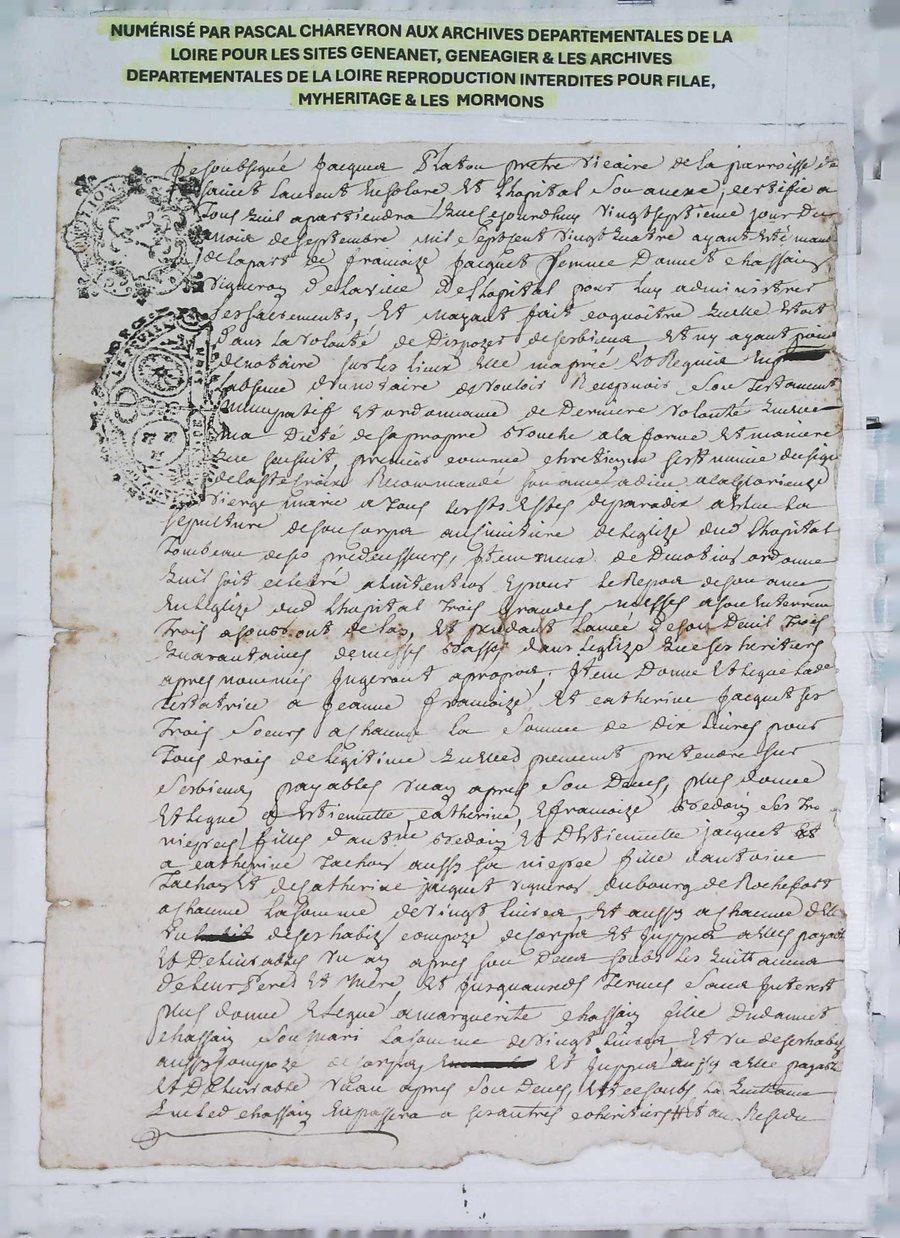 NUMÉRISÉ PAR PASCAL CHAREYRON AUX ARCHIVES DEPARTEMENTALES DE LA
LOIRE POUR LES SITES GENEANET, GENEAGIER & LES ARCHIVES
DEPARTEMENTALES DE LA LOIRE REPRODUCTION INTERDITES POUR FILAE,
MYHERITAGE & LES MORMONS
Je soubsigné Jacques Platon pretre vicaire de la parroisse de
saint Laurent en solare Et Lhopital son anexe, certifie a
Tous quil apartiendra Que cejourdhuy vingtseptieme jour du
mois de septembre mil septsent vingt quatre ayant esté
de la part de francoize Jacquet femme Damiet chassain
vigneron de la ville de Lhopital pour luy administrer
ses sacrements, Et mayant fait cognoitre quelle etoit
Dans la volonté de Dispozer de ses biens, Et ny ayant point
de notaire sur les lieux elle ma prié Et Requis en
Labsence dun notaire de vouloir Recepvoir son Testament
nuncupatif Et ordonnance de Derniere volonté quelle
ma Dicté de sa propre bouche a la forme Et maniere
que sensuit premier comme chretienne sest munie du signe
de la ste croix Recommandé son ame a dieu a la glorieuze
vierge marie a Tous les sts Et stes de paradix a Elue La
sepulture de son corps au simitiere de Leglize dud Lhopital
Tombeau de ses predecesseurs, Item meue de Devotion ordonne
quil soit celebré a lintention Et pour le Repos de son ame
En Leglize dud Lhopital Trois grandes messes a son Enterrem
Trois a son bout de lan, Et pendant Lannée de son Deuil Trois
quarantaines de messes basses dans Leglize que ses heritiers
apres nommés jugeront a propos. Item Donne Et Legue Lade
Testatrice a Jeanne francoize Et catherine Jacquet ses
Trois soeurs a chacune la somme de dix Livres pour
Tous drois de legitime pretendre sur
ses biens, payables un an apres son Deces, plus donne
Et Legue a Estiennette, catherine, Et francoize ses
niepces filles dant Et DEstiennette jacquet
a catherine Tachon aussy sa niepce fille dantoine
Tachon Et de catherine jacquet vigneron du bourg de Rochefort
a chacune La somme de vingt livres, Et aussy a chacune delle
un de ses habits compozé de corps Et juppes
Et Delivrables un an apres son Deces soubs Les quittances
de leur Peres Et Mere, Et jusquausd Termes sans Interest
plus donne Et Legue a marguerite chassain fille dudamiet
chassain son mari La somme de vingt livres Et un de ses habis
aussy compozé de corps, Et juppes aussy
Et Delivrable un an apres son Deces, Et ce soubs La quittance
que led chassain en passera a ses autres coheritiers Et au Residu